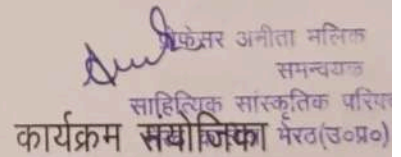 प्रोफेसर अनीता मलिक
समन्वयक
साहित्यिक सांस्कृतिक परिषद
कार्यक्रम संयोजिका मेरठ(उ०प्र०)